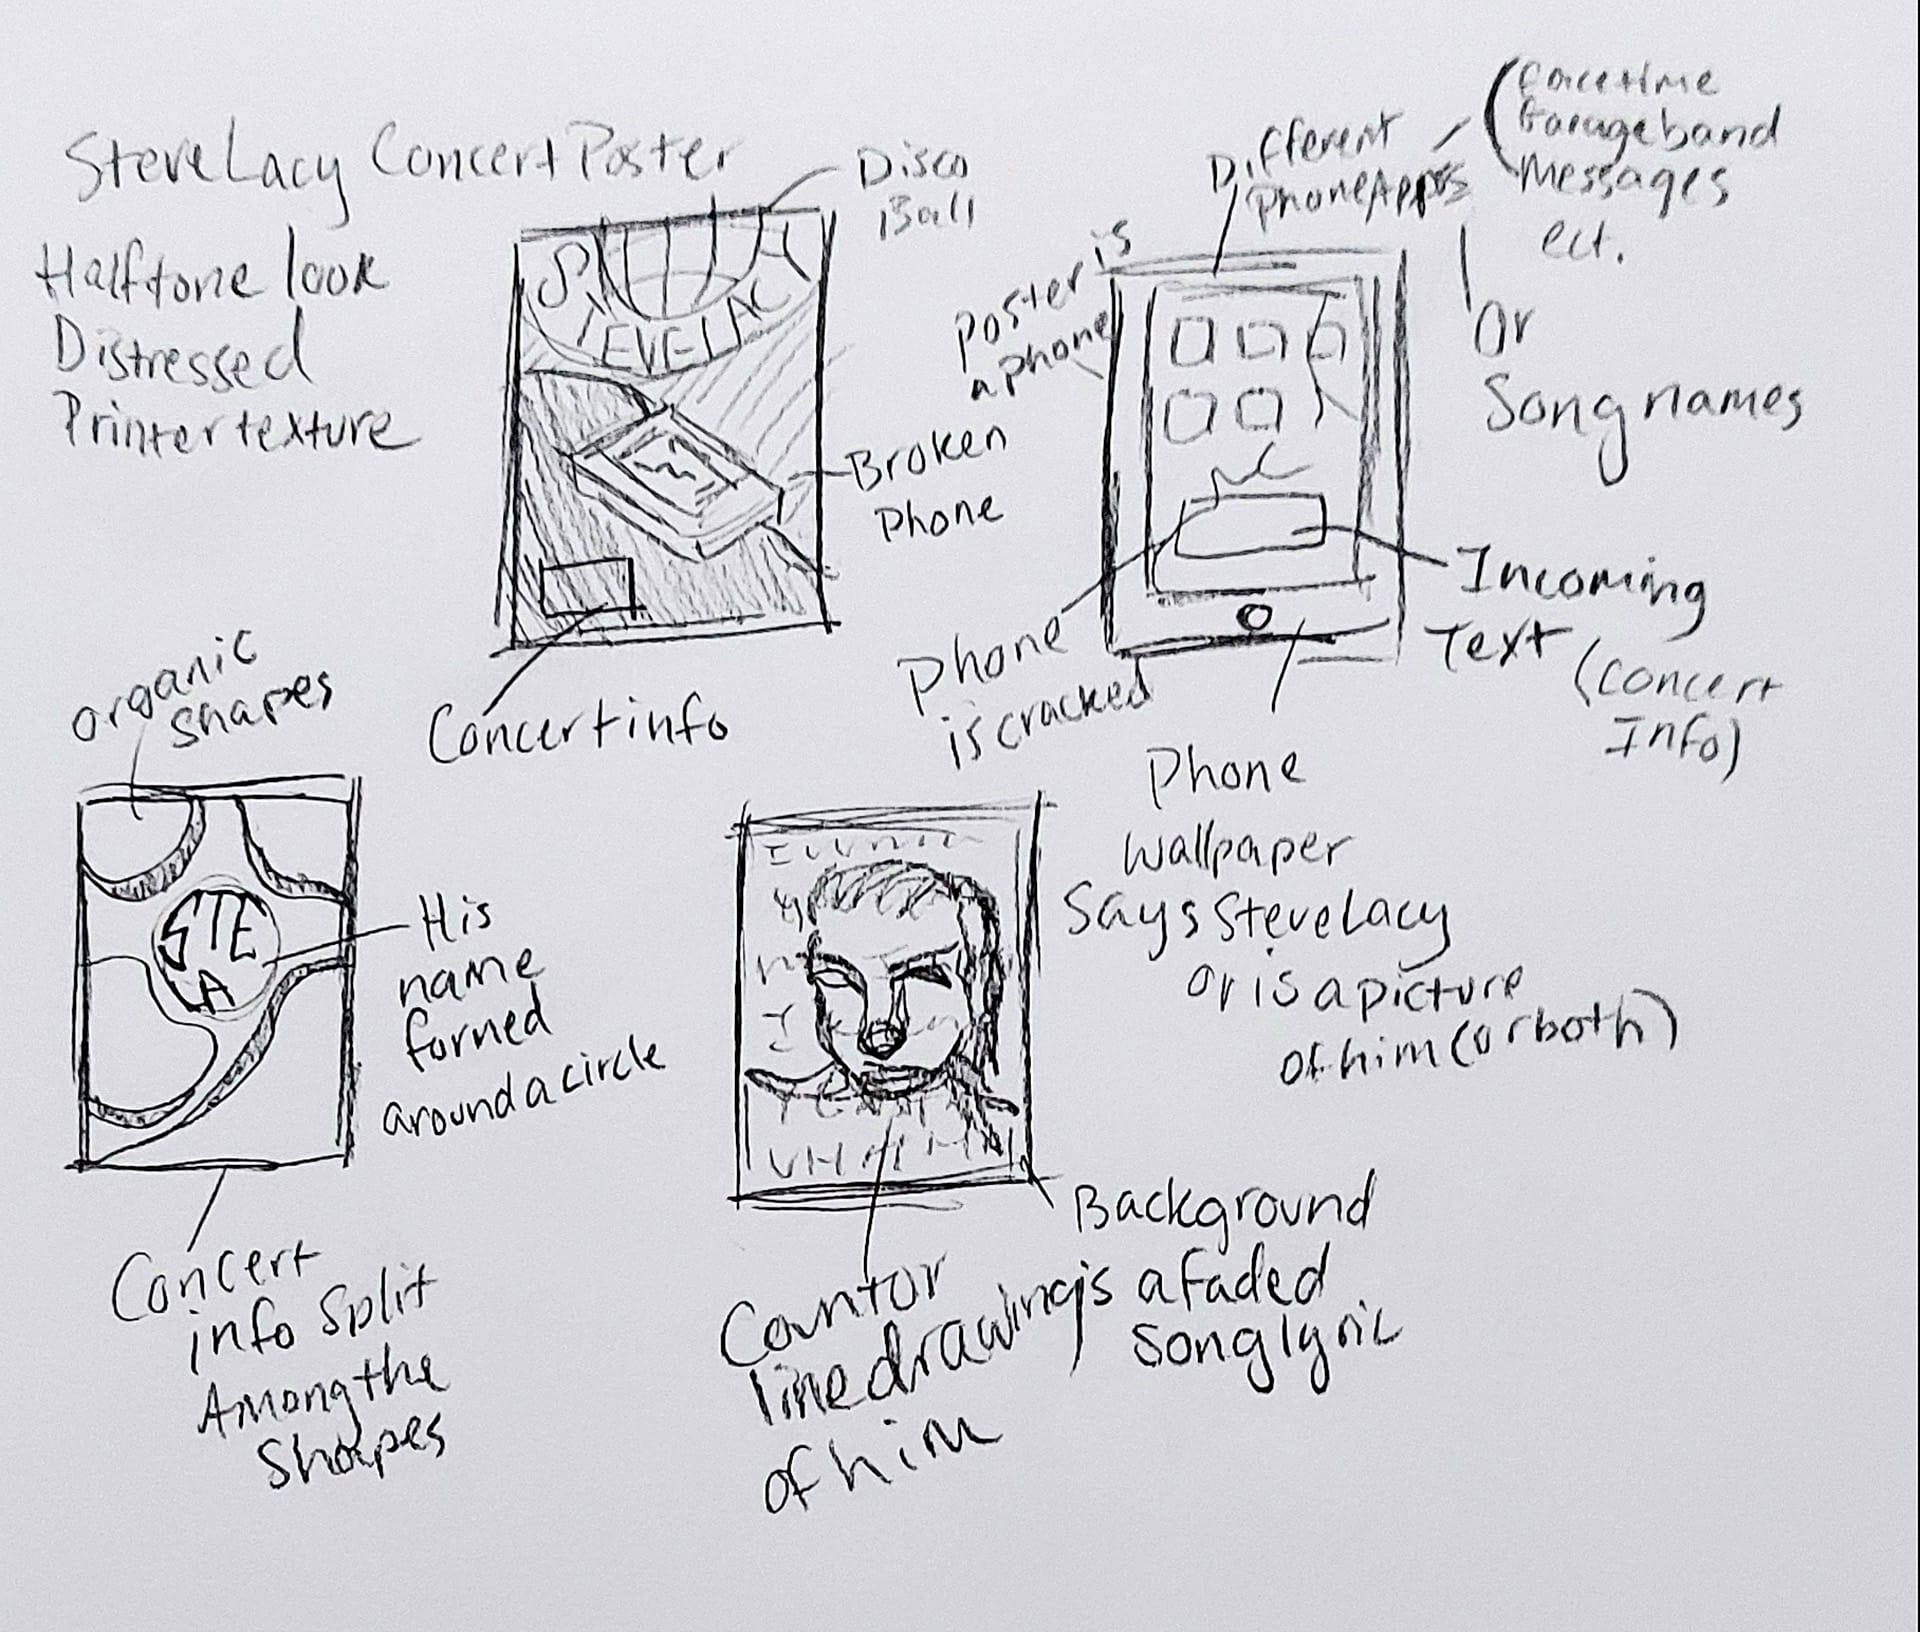 Steve Lacy Concert Poster
Halftone look
Distressed
Printer texture
Disco
Ball
STEVE LACY
Broken
Phone
Concert info
Different
Phone Apps
(Facetime
Garageband
Messages
ect.
Or
Song names
Poster is
a phone
Phone
is cracked
Incoming
Text
(Concert
Info)
Phone
Wallpaper
Says Steve Lacy
or is a picture
of him (or both)
organic
shapes
STE
LA
His
name
formed
around a circle
Concert
info split
Among the
Shapes
Countor
line drawing
of him
Background
is a faded
song lyric